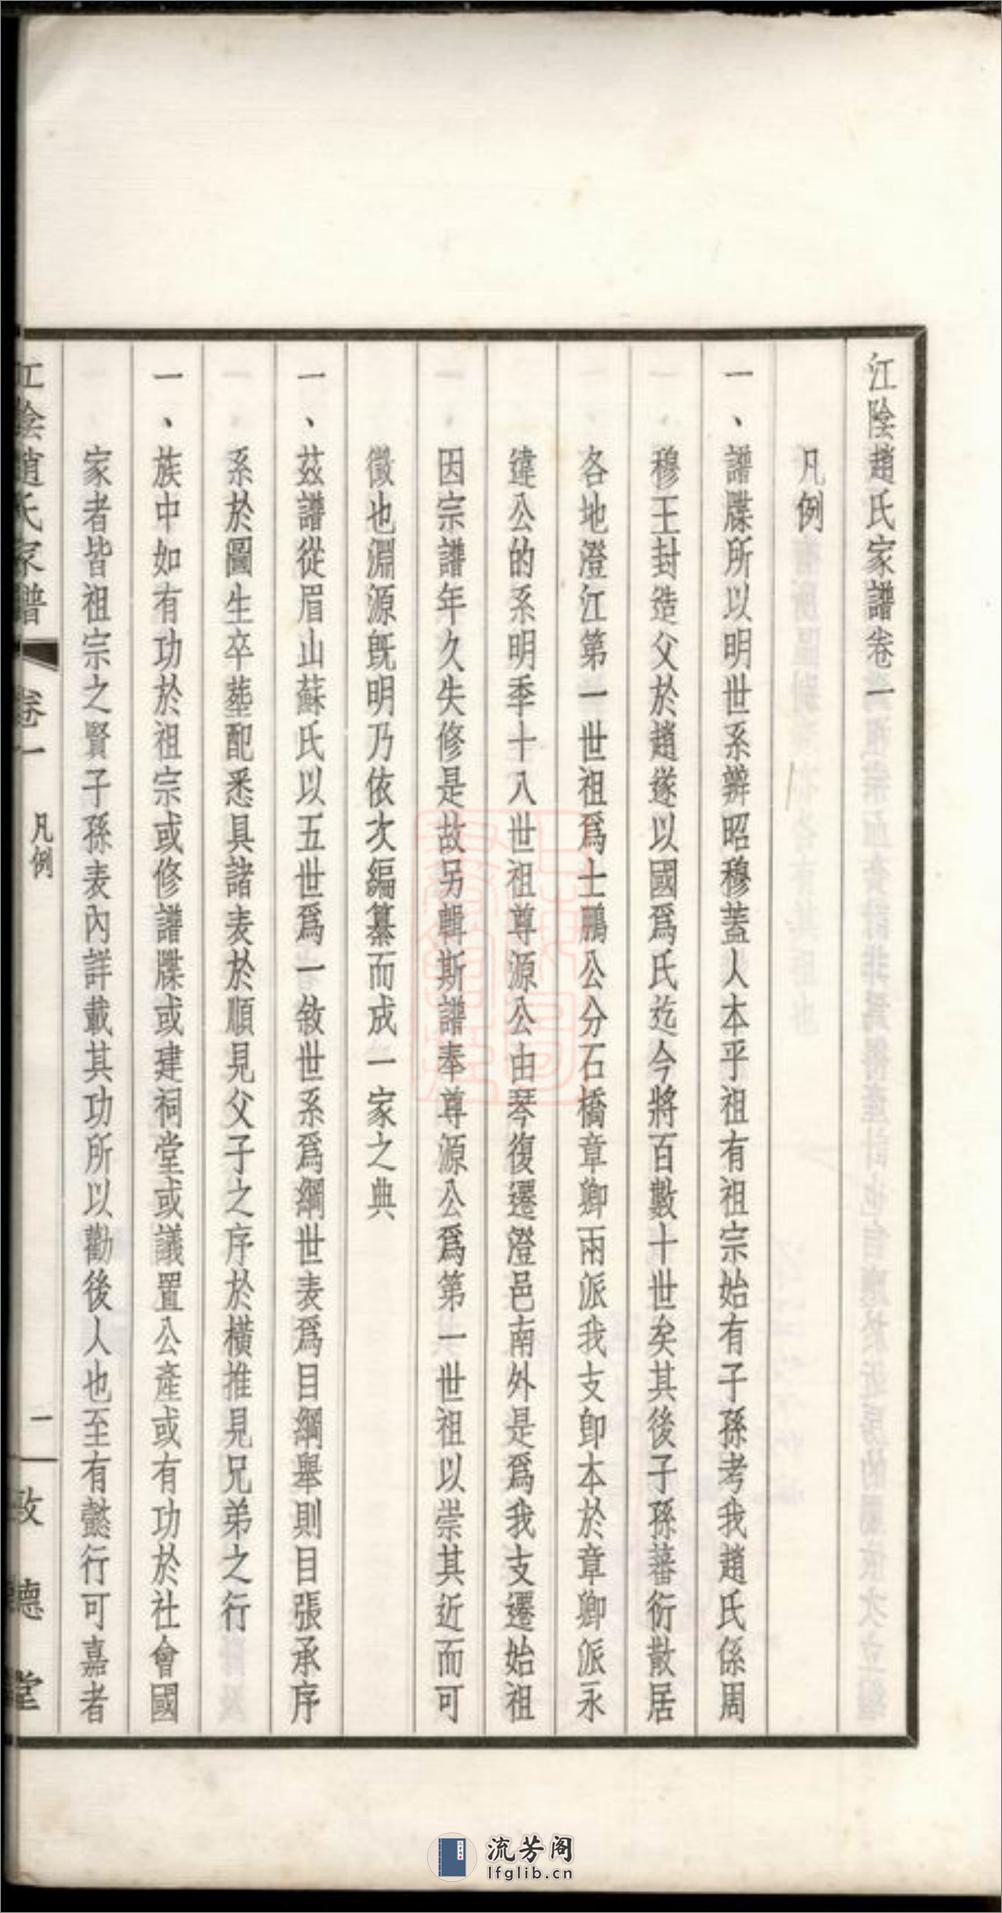 江陰趙氏家譜卷一
凡例
一、譜牒所以明世系辨昭穆蓋人本乎祖有祖宗始有子孫考我趙氏係周
穆王封造父於趙遂以國爲氏迄今將百數十世矣其後子孫蕃衍散居
各地澄江第一世祖爲士鵬公分石橋章卿兩派我支卽本於章卿派永
違公的系明季十八世祖尊源公由琴復遷澄邑南外是爲我支遷始祖
因宗譜年久失修是故另輯斯譜奉尊源公爲第一世祖以崇其近而可
徵也淵源旣明乃依次編纂而成一家之典
一、茲譜從眉山蘇氏以五世爲一敘世系爲綱世表爲目綱舉則目張承序
系於圖生卒塟配悉具諸表於順見父子之序於橫推見兄弟之行
一、族中如有功於祖宗或修譜牒或建祠堂或議置公產或有功於社會國
家者皆祖宗之賢子孫表內詳載其功所以勸後人也至有懿行可嘉者
江陰趙氏家譜 卷一 凡例 二 敦德堂
流芳阁
lfglib.cn